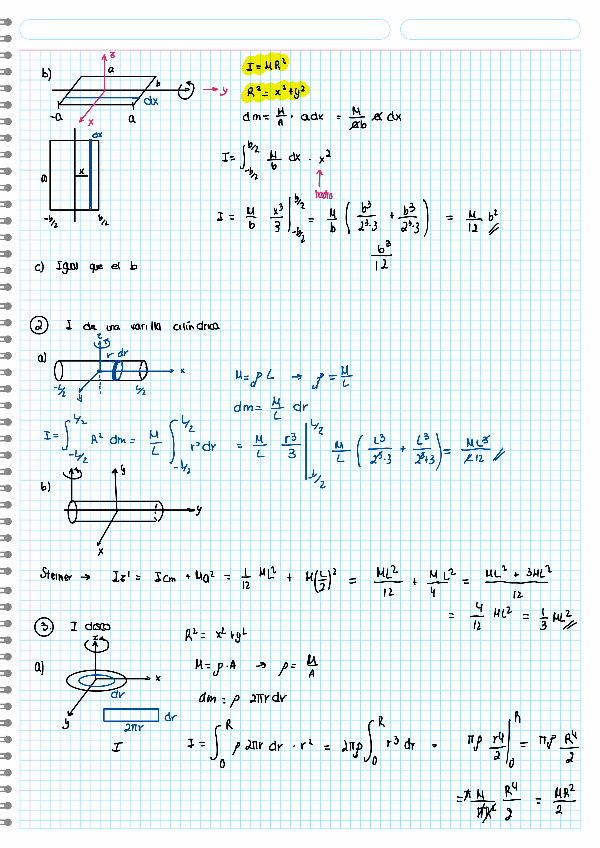 b)
z
a
b
dx
y
-a
a
x
I = MR²
R² = x² + y²
dm = M/A · a dx = M/ab a dx
dx
a
x
-b/2
b/2
I = ∫_{-b/2}^{b/2} M/b dx · x²
radio
I = M/b x³/3 |_{-b/2}^{b/2} = M/b ( b³/2³·3 + b³/2³·3 ) = M/12 b²
b³/12
c) Igual que el b
② I de una varilla cilíndrica
a)
z
r dr
x
-L/2
L/2
y
M = ρ L → ρ = M/L
dm = M/L dr
I = ∫_{-L/2}^{L/2} R² dm = M/L ∫_{-L/2}^{L/2} r² dr = M/L r³/3 |_{-L/2}^{L/2} M/L ( L³/2³·3 + L³/2³+3 ) = ML³/L12
b)
z'
y
y
x
Steiner → Iz' = Icm + Ma² = 1/12 ML² + M(L/2)² = ML²/12 + ML²/4 = ML² + 3ML²/12
= 4/12 ML² = 1/3 ML²
③ I disco
R² = x² + y²
a)
z
x
dr
y
M = ρ·A → ρ = M/A
dm = ρ 2πr dr
dr
2πr
I
I = ∫_0^R ρ 2πr dr · r² = 2πρ ∫_0^R r³ dr = πρ r⁴/2 |_0^R = πρ R⁴/2
= π M/πR² R⁴/2 = MR²/2